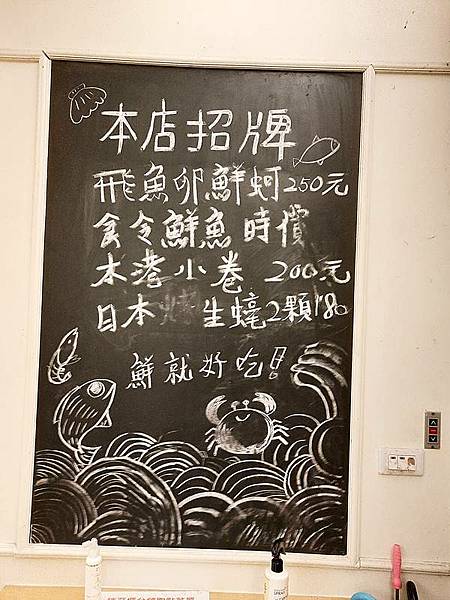 本店招牌
飛魚卵鮮蚵250元
食令鮮魚時價
本港小卷 200元
日本 生蠔2顆180
鮮就好吃!